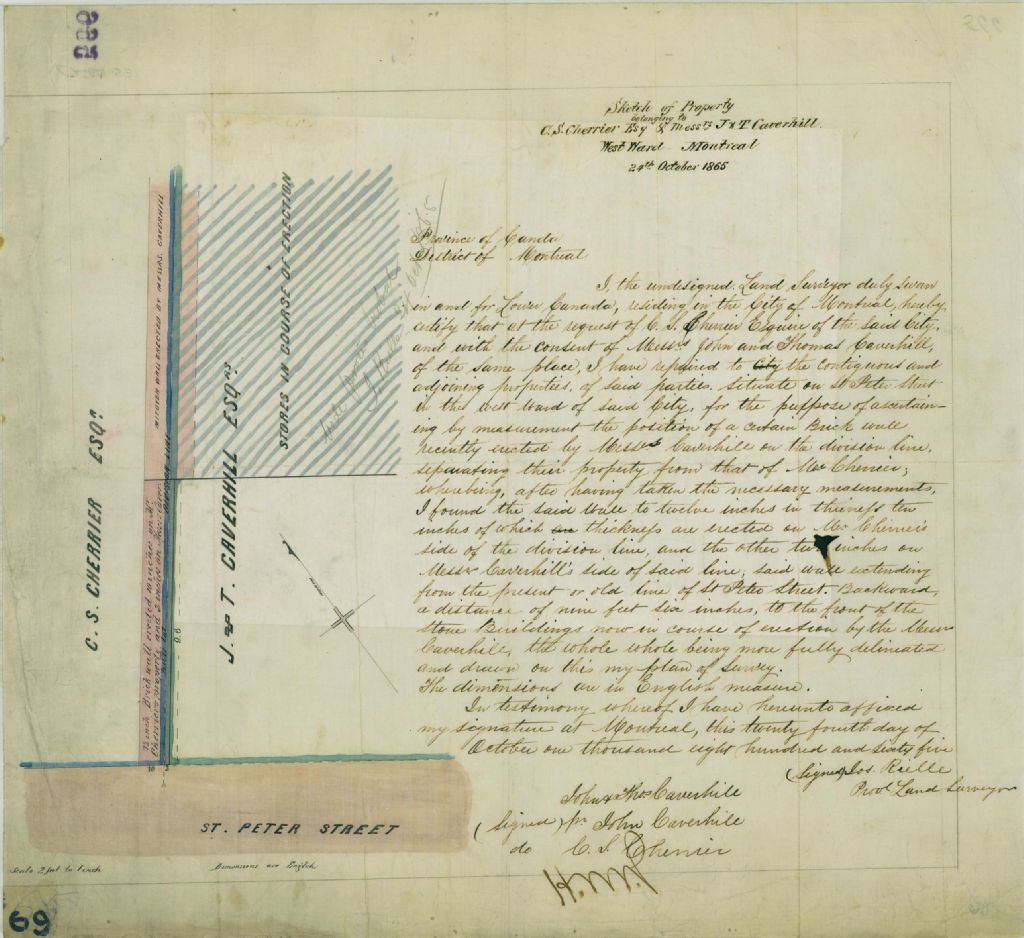 Sketch of Property
belonging to
C. S. Cherrier Esq & Messrs J & T Caverhill.
West Ward Montreal
24th October 1865
Province of Canda
District of Montreal
I, the undesigned Land Surveyor duly swan
in and for Lower Canada, residing in the City of Montreal, hereby
certify that at the request of C. S. Cherrier Esquire of the said City,
and with the consent of Messrs John and Thomas Caverhill,
of the same place, I have repaired to City the contiguous and
adjoining properties, of said parties, situate on St Peter Street
in the west ward of said City, for the purpose of ascertain-
ing by measurement the position of a certain Brick wall
recently erected by Messrs Caverhill on the division line,
separating their property from that of Mer Cherrier;
wherebeing, after having taken the necessary measurements,
I found the said wall to twelve inches in thickness ten
inches of which are thickness are erected on Mer Cherrier's
side of the division line, and the other two inches on
Messrs Caverhill's side of said line; said wall extending
from the present or old line of St Peter Street. Backward,
a distance of nine feet six inches, to the front of the
stone Buildings now in course of erection by the Messrs
Caverhill, the whole whole being more fully delineated
and drawn on this my plan of survey.
The dimensions are in English measure.
In testimony whereof I have hereunto affixed
my signature at Montreal, this twenty fourth day of
October one thousand eight hundred and sixty five
(Signed) Jos. Rielle
Provl Land Surveyor
John & Thos Caverhill
(Signed) pr John Caverhill
do C. S. Cherrier
H.M.N.
C. S. CHERRIER ESQR.
MITOYEN WALL ERECTED BY MESSRS. CAVERHILL
12 inch Brick wall erected 10 inches on Mr
Cherrier's property and 2 inches on Messrs Caver
J. & T. CAVERHILL ESQRS.
STORES IN COURSE OF ERECTION
9.6
10
2
ST. PETER STREET
Scale 2 feet to 1 inch
Dimensions are English
69